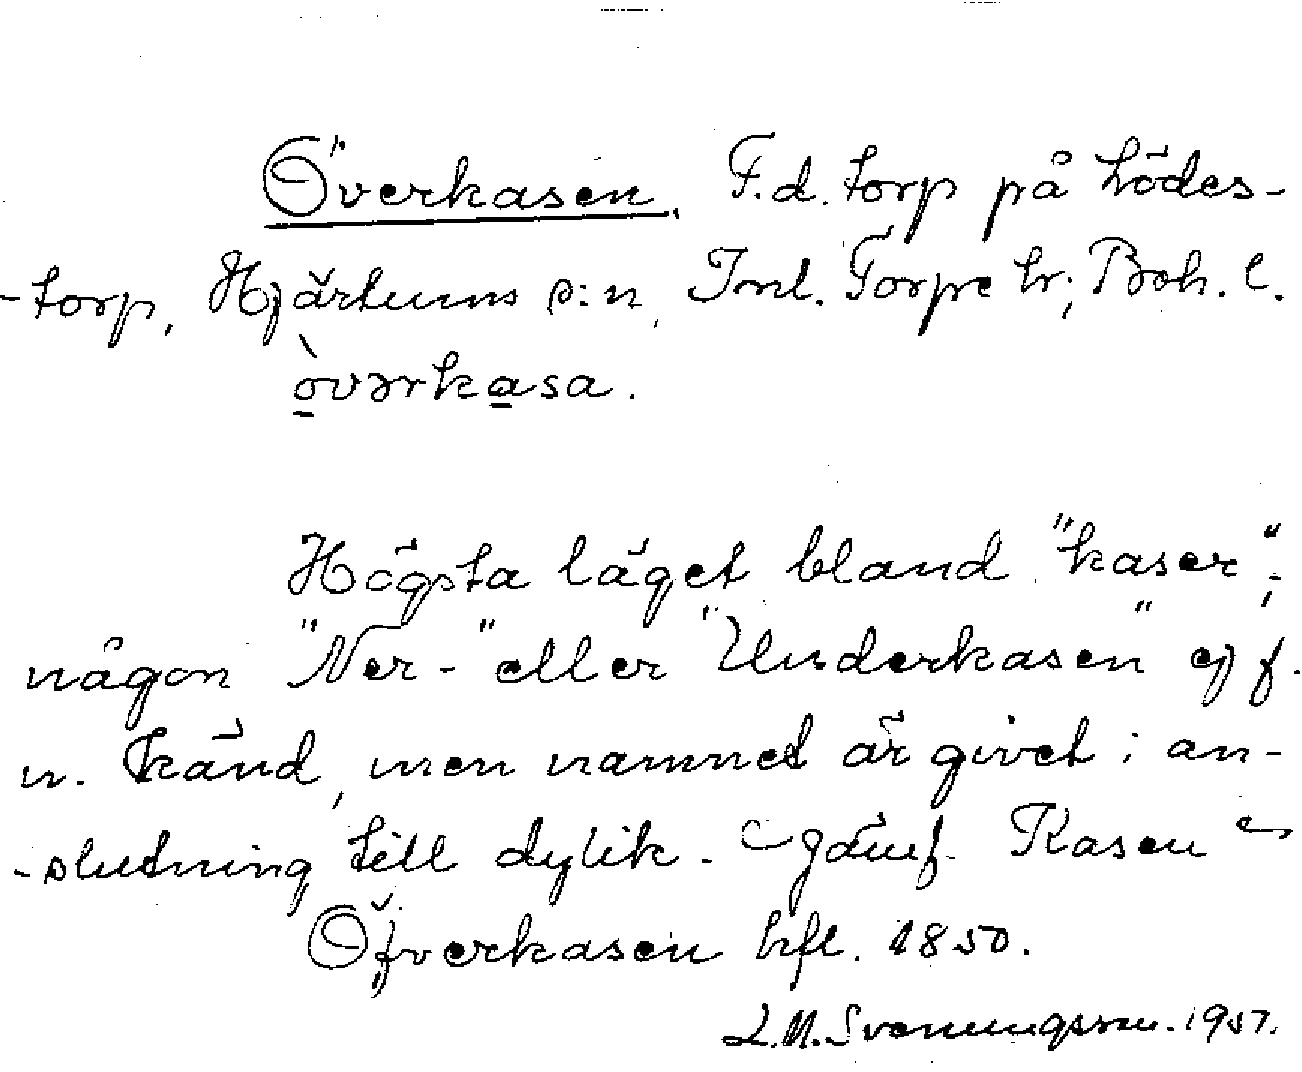 Överkasen. F.d. torp på Lödes-
-torp, Hjärtums s:n, Inl. Torpe hr; Boh. l.
òvərkasa.
Högsta läget bland "kaser";
någon "Ner-" eller "Underkasen" ej f.
n. känd, men namnet är givet i an-
-slutning till dylik. – Jämf. Kasen –
Öfverkasen hfl. 1850.
L.M. Svenungsson. 1957.